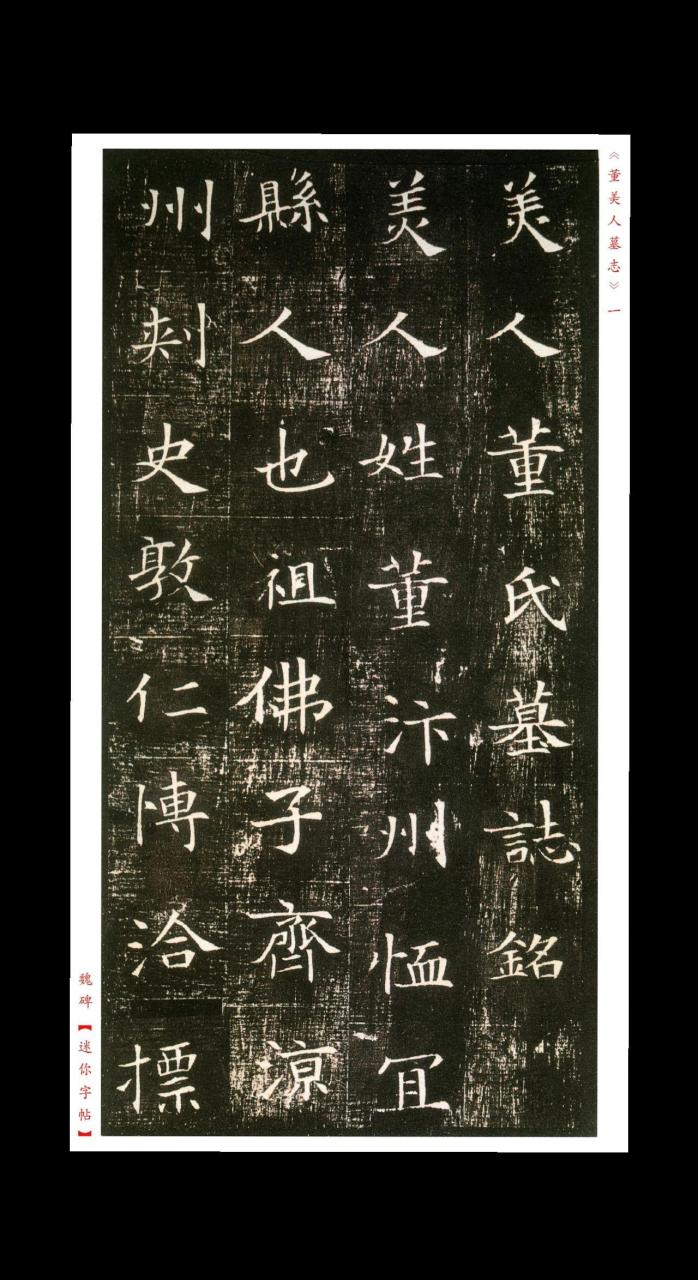 《董美人墓志》一
美人董氏墓誌銘
美人姓董汴州恤冝
縣人也祖佛子齊涼
州刾史敦仁博洽標
魏碑【迷你字帖】